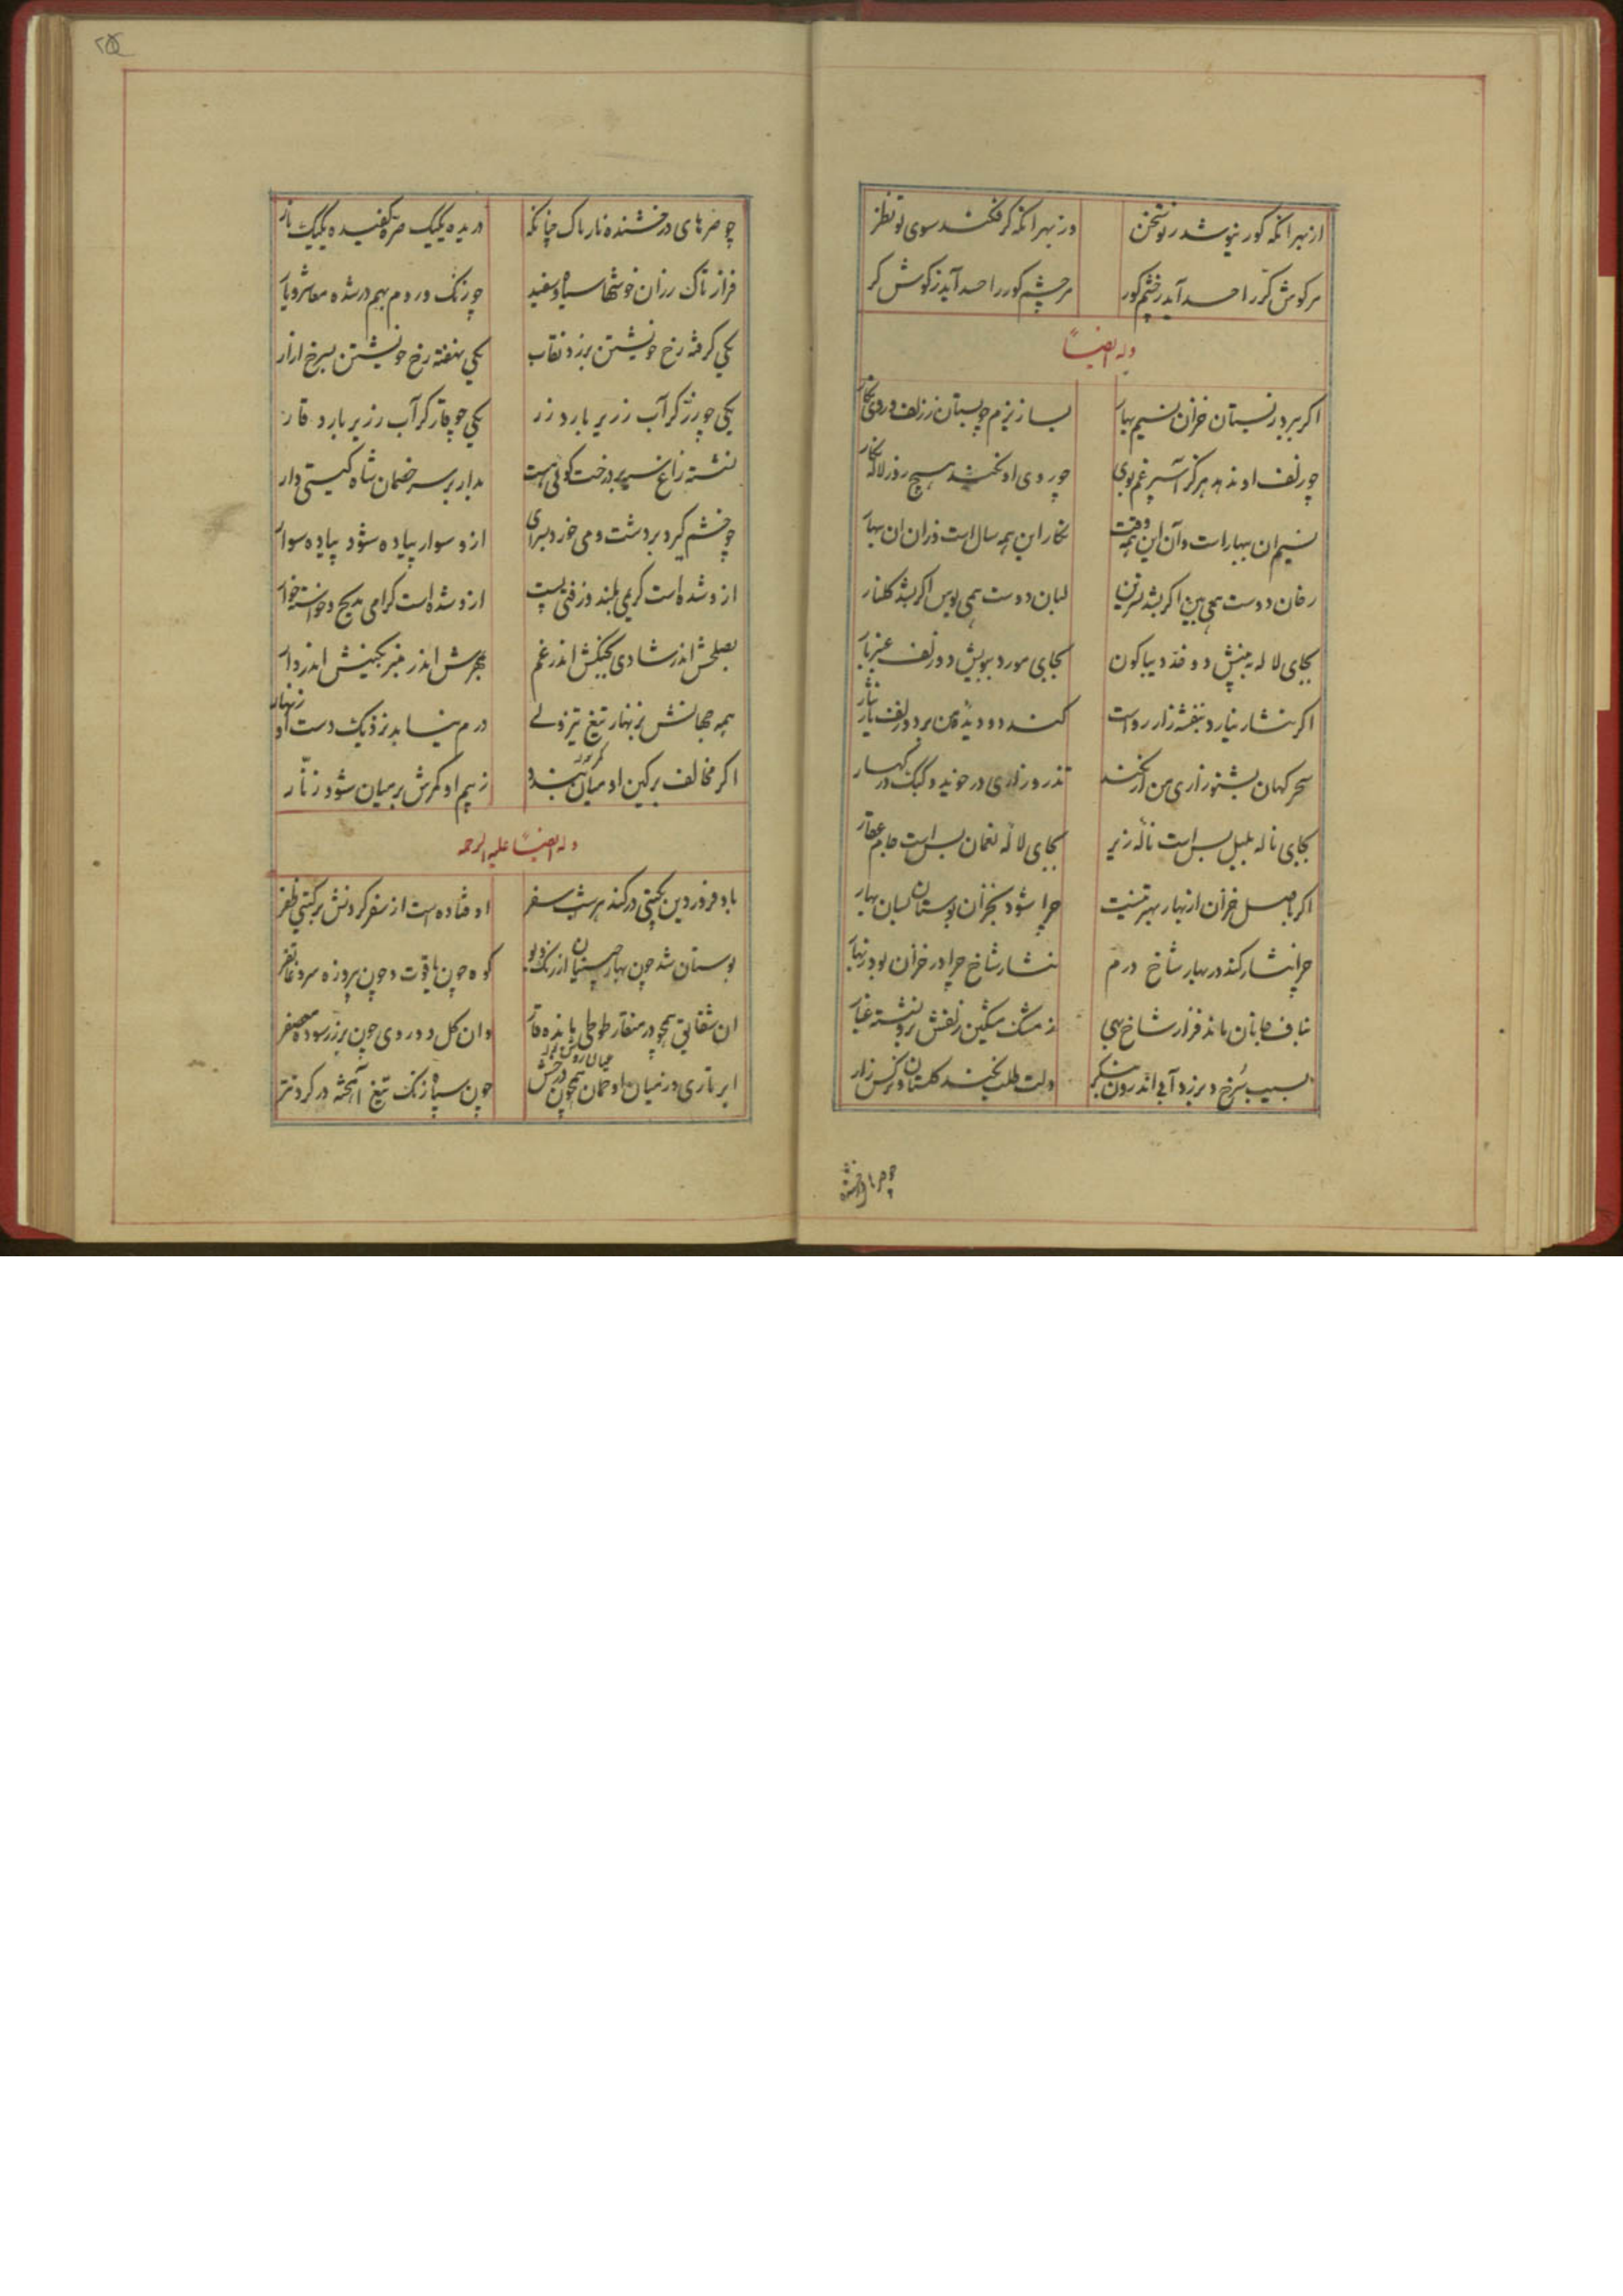 از بهر آنکه کور نیوشد ز تو سخن
وز بهر آنکه کر فکند سوی تو نظر
مر گوش کرّ را حسد آید ز چشم کور
مر چشم کور را حسد آید ز گوش کر
وله ایضاً
اکر ببرد ز بستان خزان نسیم بهار
بسا زیزم چو بستان ز زلف و روی نکار
چو زلف او ندهد هرکز اسپرغم بوی
چو روی او نکند هیچ روز لاله نکار
نسیم ان بهار است وآن این همه وقت
نکار این همه سال است وزان ان بهار
رخان دوست همی بین اکر بشد نسرین
لبان دوست همی بوس اکر بشد کلنار
بجای لاله ببینش دو خد دیبا کون
بجای مورد ببویش دو زلف عنبر بار
اکر بنشار نیارد بنفشه زار رواست
کند دو دیدهٔ من بر دو زلف یار نثار
سحر کهان بشنو زاری من ار نکند
تذرو زاری در خوید و کبک در کهسار
بجای ناله بلبل بس است ناله زیر
بجای لاله نعمان بس است جام عقار
اکر باصل خزان از بهار بهتر نیست
چرا شود بخزان بوستان بسان بهار
چرا نشار کند در بهار شاخ درم
بنشار شاخ چرا در خزان بود دینار
بناف جانان ماند فراز شاخ بهی
ز مشک مشکین زلفش برو نشسته غبار
بسیب سرخ و بزرد آبی اندرون بنکر
دلت طلب نکند کلستان و نرکس زار
چو صرهای درخشنده
چو صرهای درخشنده نار باک چنانکه
دریده یکیک صره کفیده یکیک نار
فراز تاک رزان خوشها سیاه و سفید
چو زنک و روم بهم در شده معاشر و یار
یکی کرفته رخ خویشتن بزرد نقاب
یکی نهفته رخ خویشتن بسرخ ازار
یکی چو زرّ کز آب رز برو بارد زر
یکی چو قار کز آب رز برو بارد قار
نشسته زاغ بسر بر درخت کوئی هست
مدار بر سر خصمان شاه کیتی دار
چو خشم کیرد بر دشت و می خورد بسرای
ازو سوار پیاده شود پیاده سوار
ازو شده است کریمی بلند و زفتی پست
ازو شده است کرامی مدیح و خواسته خوار
بصلحش اندر شادی بجنکش اندر غم
بمهرش اندر منبر بکینش اندر دار
همه جهانش بزنهار تیغ تیز ولی
درم نیاید نزدیک دست او زنهار
اکر مخالف بر کین او میان بندد
ز بیم او کمرش بر میان شود زنّار
وله ایضاً علیه الرحمه
باد فروردین بکیتی در کند هر شب سفر
اوفتاده است از سفر کردنش بر کیتی ظفر
بوستان شد چون بهار چینیان از رنک و بو
کوه چون یاقوت و چون پیروزه سرو غاتفر
ان شقایق همچو در منقار طوطی پاره قار
وان کل دو روی چون بر زر سوده معصفر
ابر تاری در میان او جهان همچون درخش
چون سپاه زنک تیغ آهخته در کرد نتر